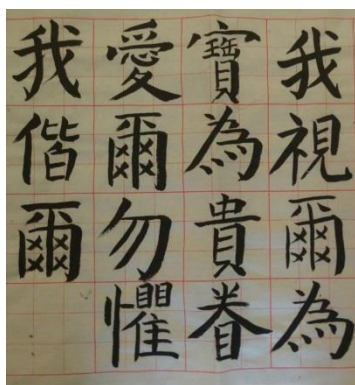 我視爾為
寶為貴眷
愛爾勿懼
我偕爾